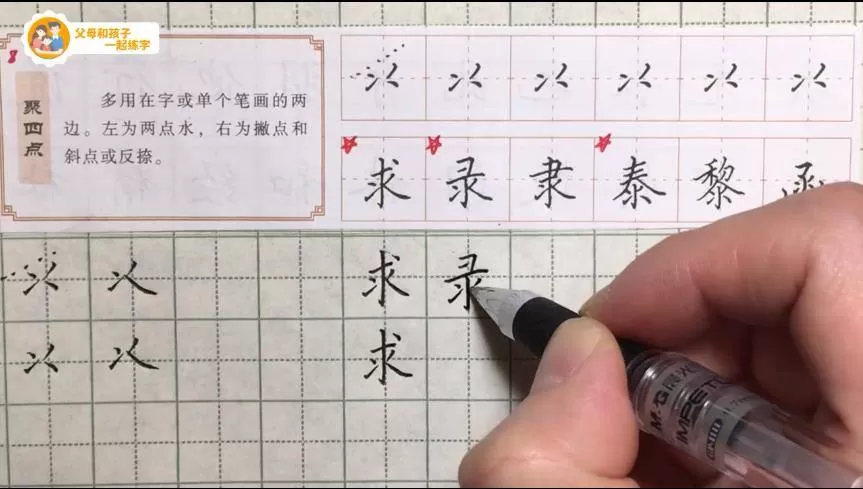 父母和孩子
一起练字
8
聚四点
多用在字或单个笔画的两
边。左为两点水，右为撇点和
斜点或反捺。
求 录 隶 泰 黎 函
求 录
求
M&G
IMPETU